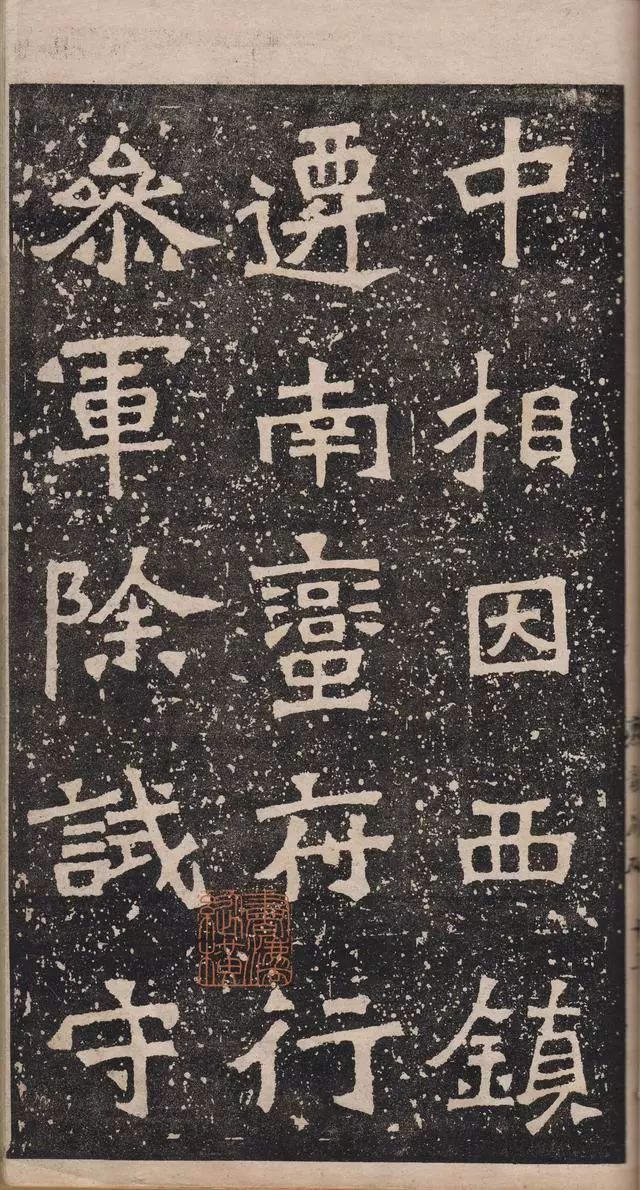 中相因西鎮
遷南蠻府行
參軍除試守